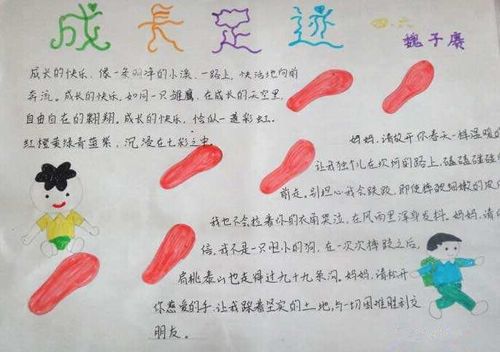 成长足迹
四.六
魏子赓
成长的快乐，像一条叮咚的小溪，一路上，快活地向前
奔流。成长的快乐，如同一只雄鹰，在成长的天空里，
自由自在的翱翔。成长的快乐，恰似一道彩虹。
红橙黄绿青蓝紫，沉浸在七彩之中。
妈妈，请放开你春天一样温暖
让我独个儿在坎坷的路上，磕磕碰碰
前走。别担心我会跌跤，即使摔破细嫩的皮
我也不会拉着你的衣角哭泣，在风雨里浑身发抖。妈妈，请
信，我不是一只胆小的狗，在一次次摔跤之后，
肩挑泰山也走得过九十九条河。妈妈，请松开
你慈爱的手，让我踩着坚实的土地，与一切困难胜利交
朋友。